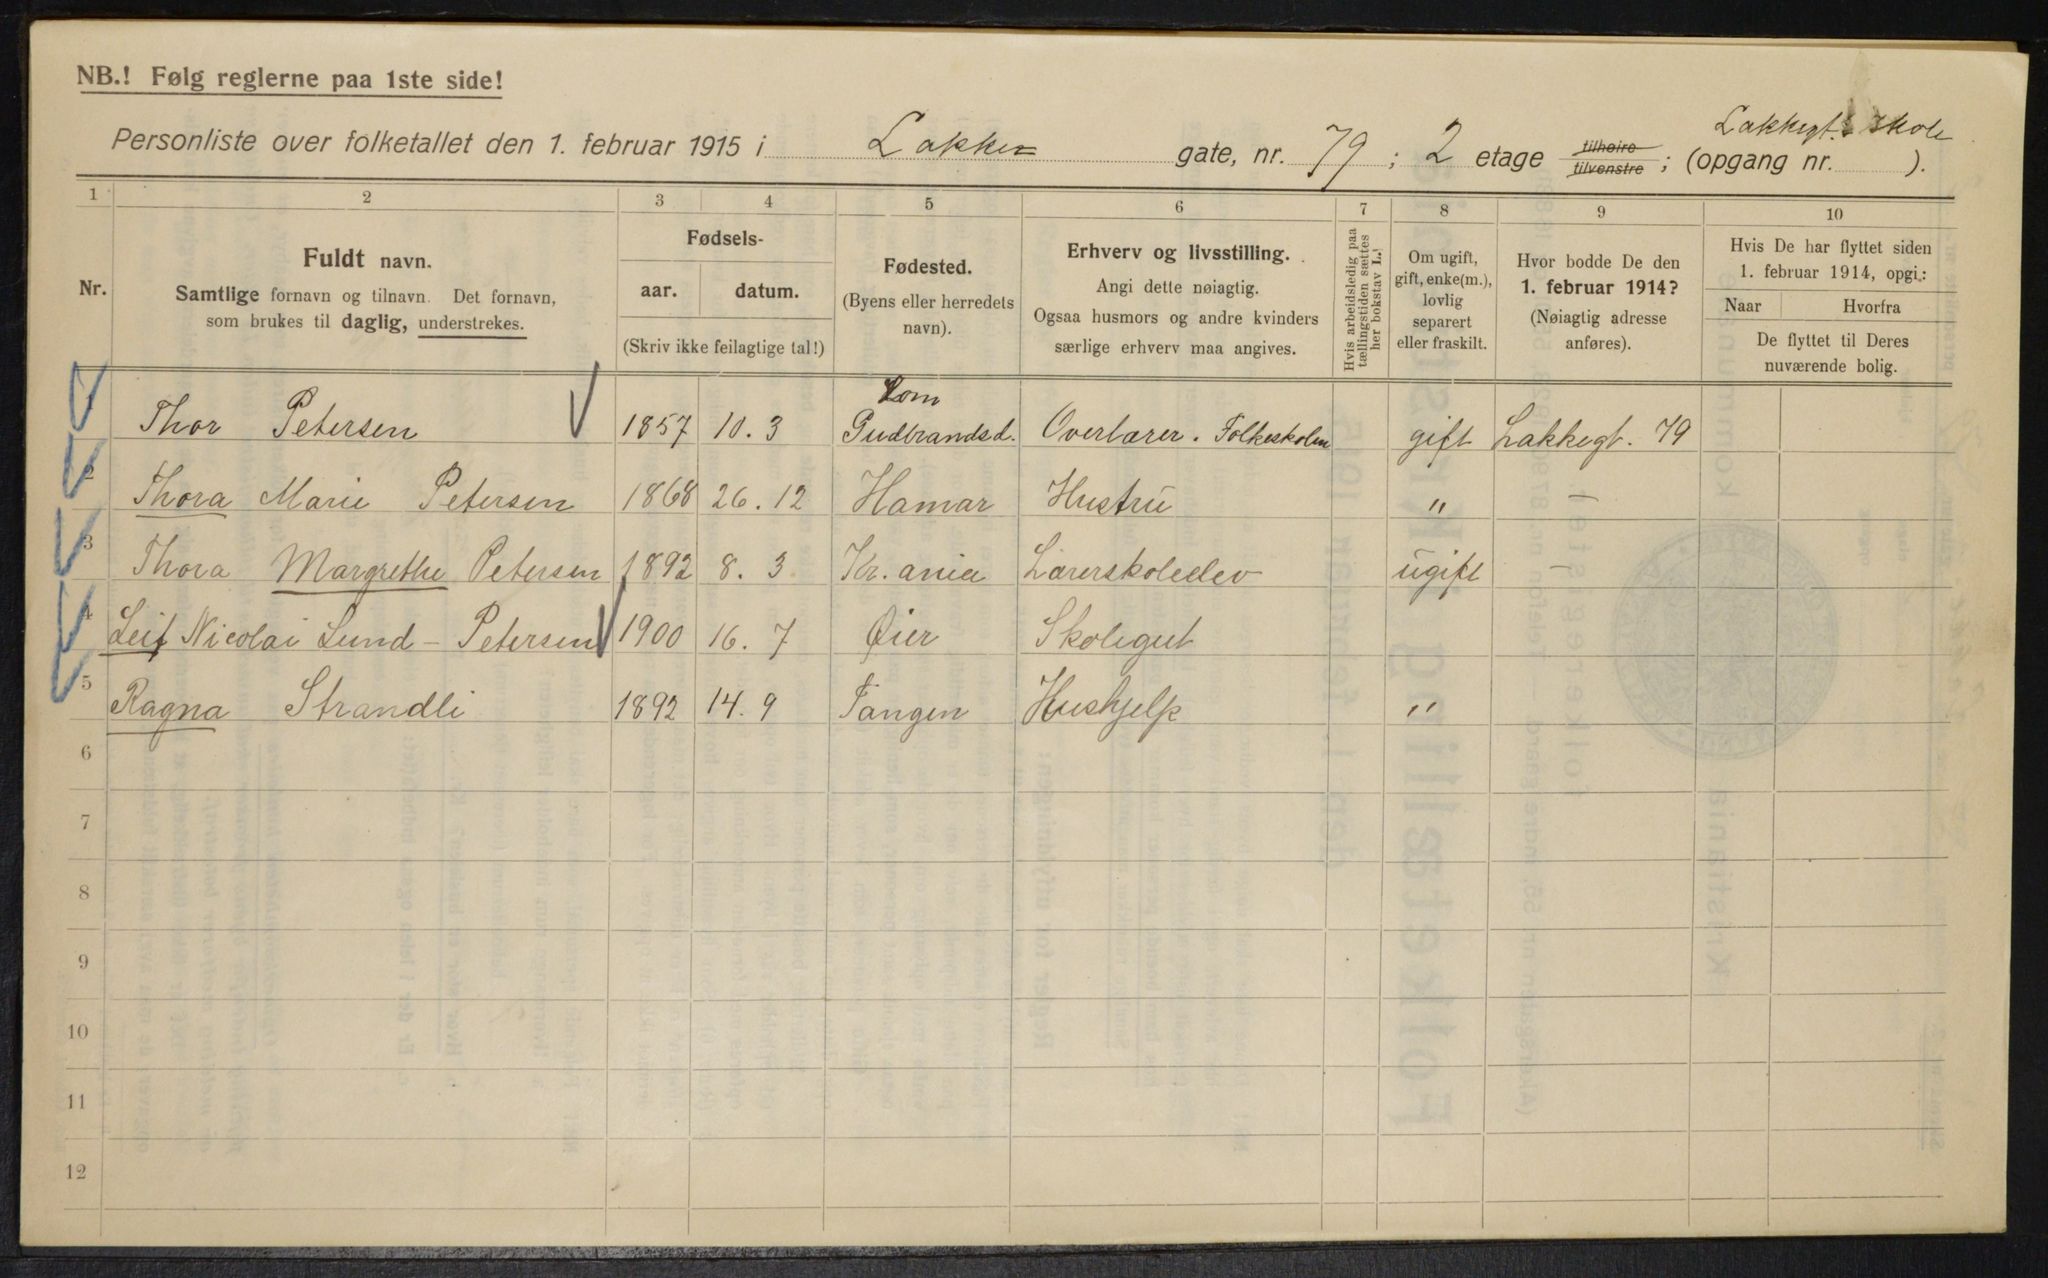 NB.! Følg reglerne paa 1ste side!
Lakkegt. skole
Personliste over folketallet den 1. februar 1915 i Lakke gate, nr. 79 ; 2 etage tilhøire tilvenstre ; (opgang nr. ).
1 2 3 4 5 6 7 8 9 10
Nr.
Fuldt navn.
Samtlige fornavn og tilnavn. Det fornavn,
som brukes til daglig, understrekes.
Fødsels-
aar. datum.
(Skriv ikke feilagtige tal!)
Fødested.
(Byens eller herredets
navn).
Erhverv og livsstilling.
Angi dette nøiagtig.
Ogsaa husmors og andre kvinders
særlige erhverv maa angives.
Hvis arbeidsledig paa
tællingstiden sættes
her bokstav L.!
Om ugift,
gift, enke(m.),
lovlig
separert
eller fraskilt.
Hvor bodde De den
1. februar 1914?
(Nøiagtig adresse
anføres).
Hvis De har flyttet siden
1. februar 1914, opgi.:
Naar Hvorfra
De flyttet til Deres
nuværende bolig.
Lom
1 Thor Petersen 1857 10. 3 Gudbrandsd. Overlærer. Folkeskolen gift Lakkegt. 79
2 Thora Marie Petersen 1868 26. 12 Hamar Hustru " –
3 Thora Margrethe Petersen 1892 8. 3 Kr.ania Lærerskoleelev ugift –
4 Leif Nicolai Lund - Petersen 1900 16. 7 Øier Skolegut
5 Ragna Strandli 1892 14. 9 Tangen Hushjelp "
6
7
8
9
10
11
12